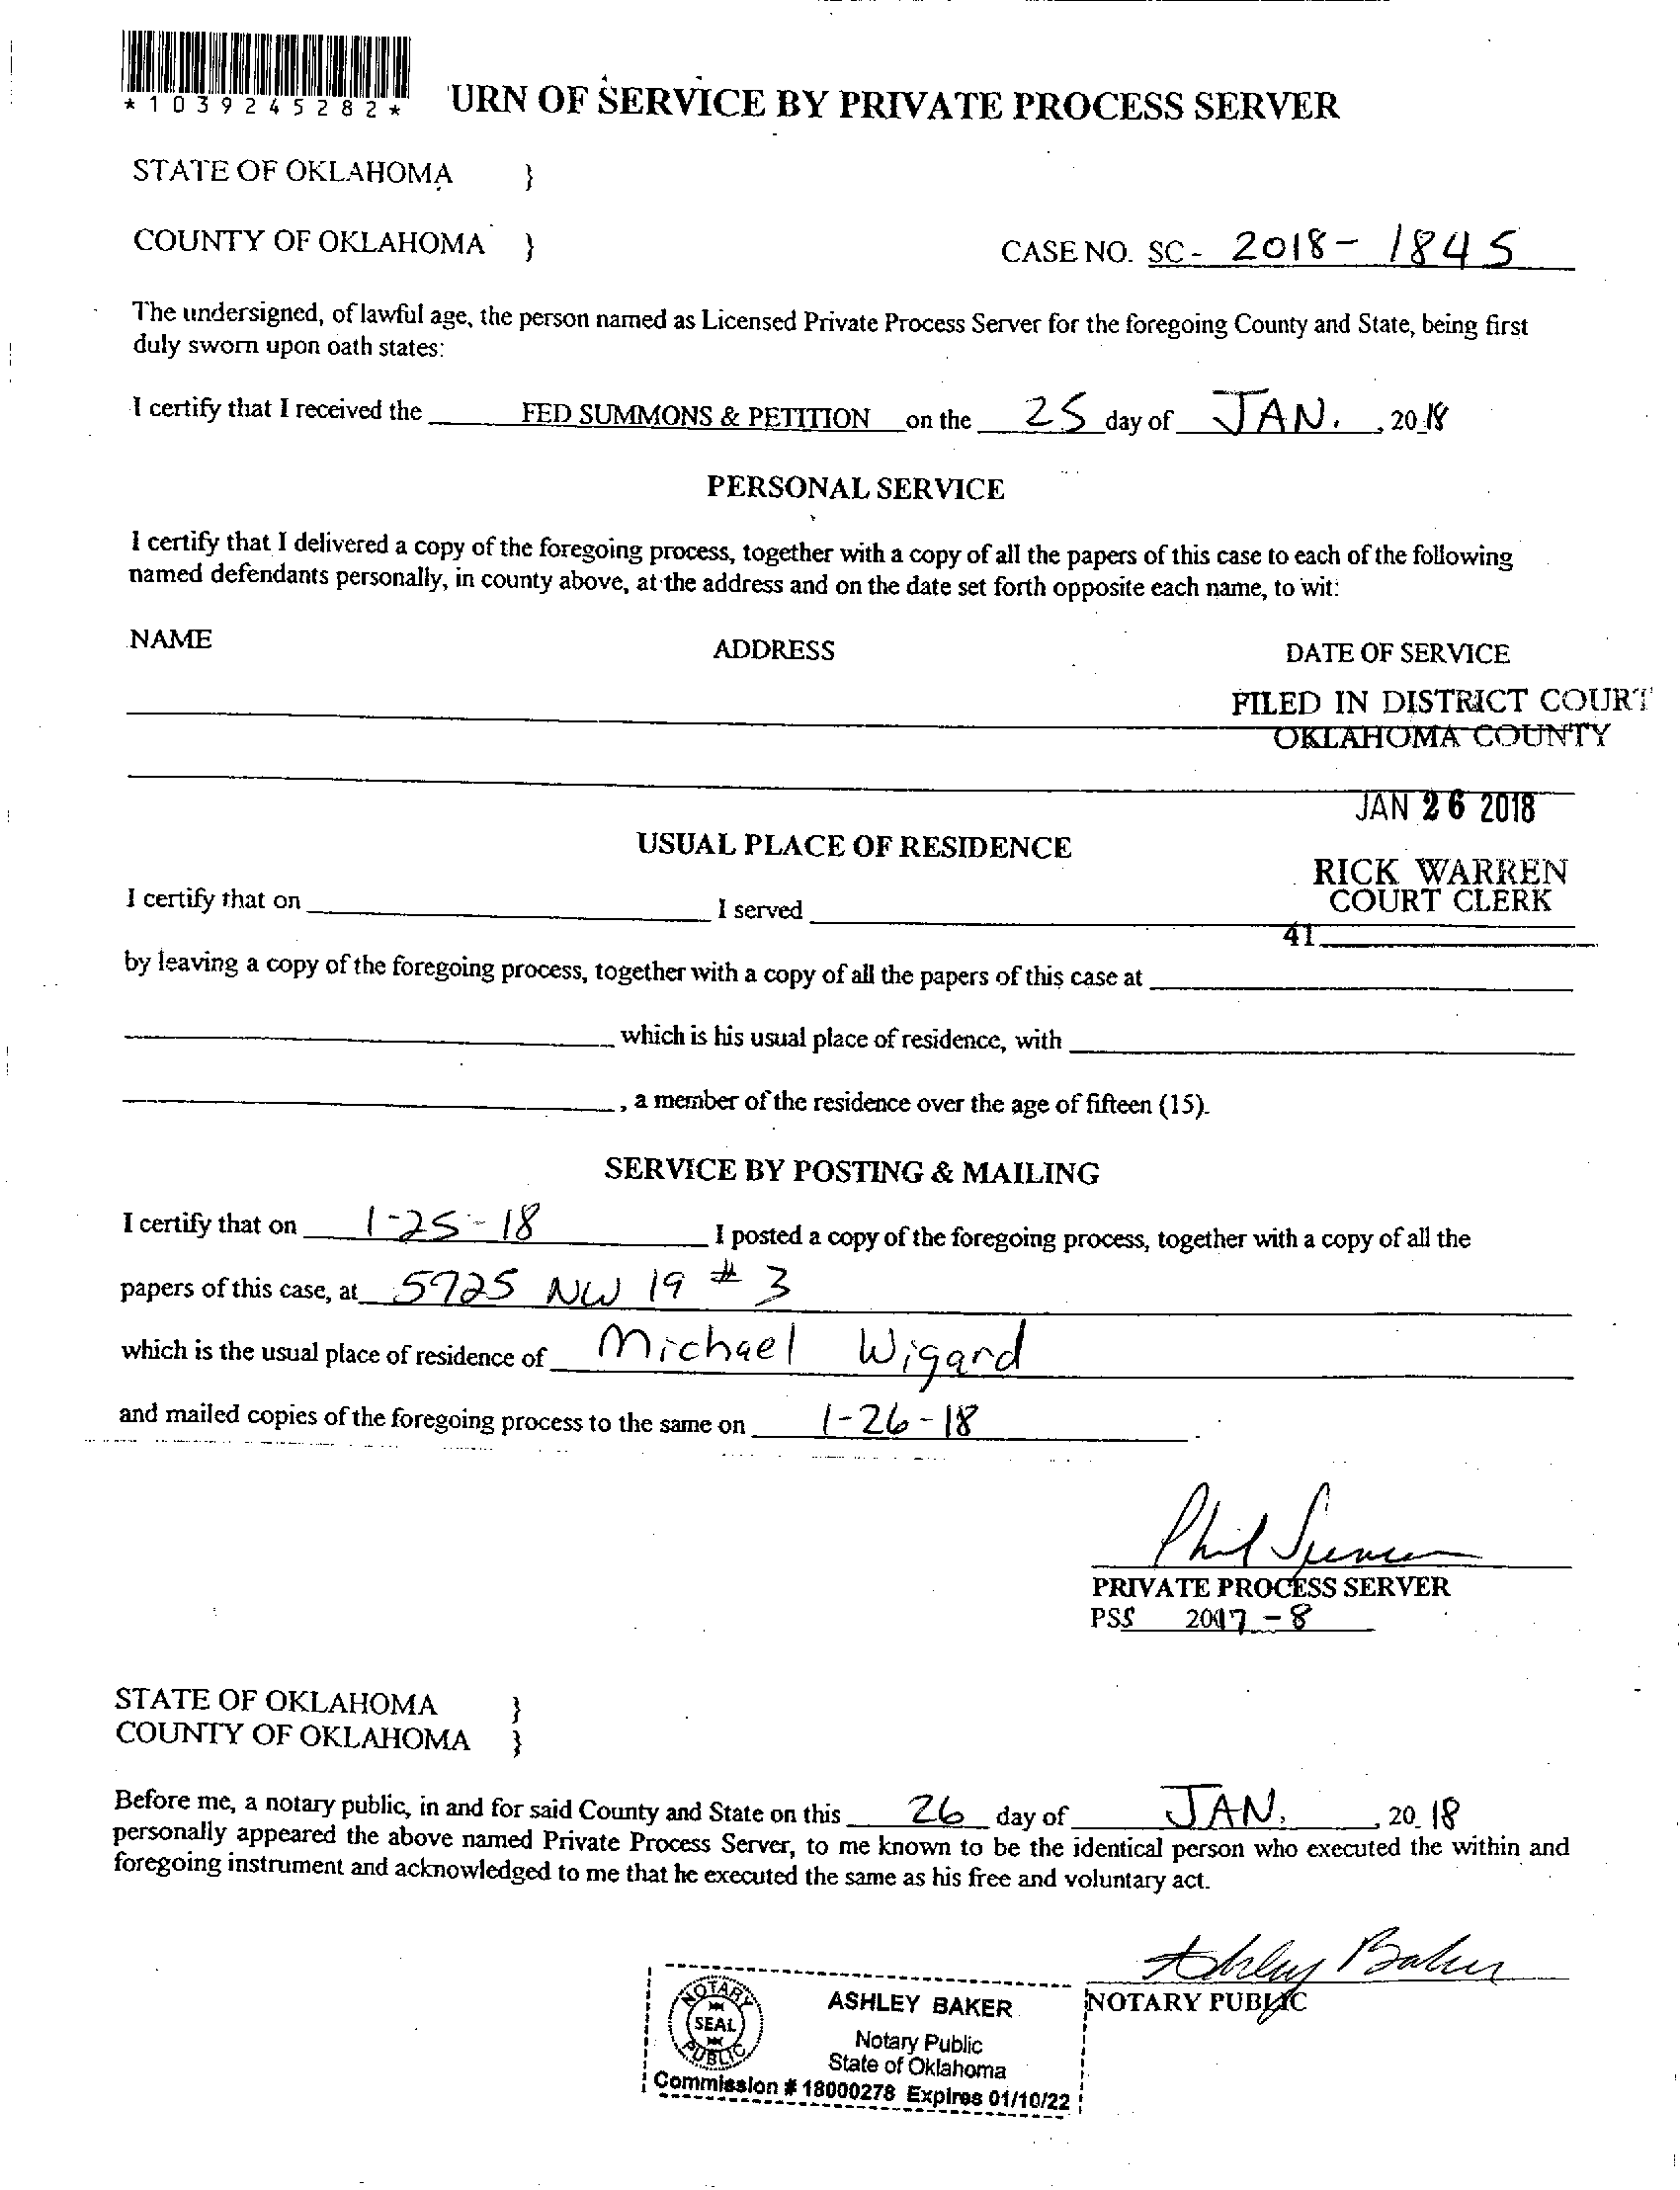 *1039245282*
URN OF SERVICE BY PRIVATE PROCESS SERVER
STATE OF OKLAHOMA }
COUNTY OF OKLAHOMA }
CASE NO. SC- 2018-1845
The undersigned, of lawful age, the person named as Licensed Private Process Server for the foregoing County and State, being first
duly sworn upon oath states:
I certify that I received the FED SUMMONS & PETITION on the 25 day of JAN. , 2018
PERSONAL SERVICE
I certify that I delivered a copy of the foregoing process, together with a copy of all the papers of this case to each of the following
named defendants personally, in county above, at the address and on the date set forth opposite each name, to wit:
NAME ADDRESS DATE OF SERVICE
FILED IN DISTRICT COURT
OKLAHOMA COUNTY
JAN 26 2018
USUAL PLACE OF RESIDENCE
RICK WARREN
COURT CLERK
I certify that on I served
41
by leaving a copy of the foregoing process, together with a copy of all the papers of this case at
which is his usual place of residence, with
, a member of the residence over the age of fifteen (15).
SERVICE BY POSTING & MAILING
I certify that on 1-25-18 I posted a copy of the foregoing process, together with a copy of all the
papers of this case, at 5725 NW 19 # 3
which is the usual place of residence of Michael Wigard
and mailed copies of the foregoing process to the same on 1-26-18
Phil Spencer
PRIVATE PROCESS SERVER
PSS 2017-8
STATE OF OKLAHOMA }
COUNTY OF OKLAHOMA }
Before me, a notary public, in and for said County and State on this 26 day of JAN. , 2018
personally appeared the above named Private Process Server, to me known to be the identical person who executed the within and
foregoing instrument and acknowledged to me that he executed the same as his free and voluntary act.
Ashley Baker
NOTARY PUBLIC
NOTARY
SEAL
PUBLIC
ASHLEY BAKER
Notary Public
State of Oklahoma
Commission # 18000278 Expires 01/10/22